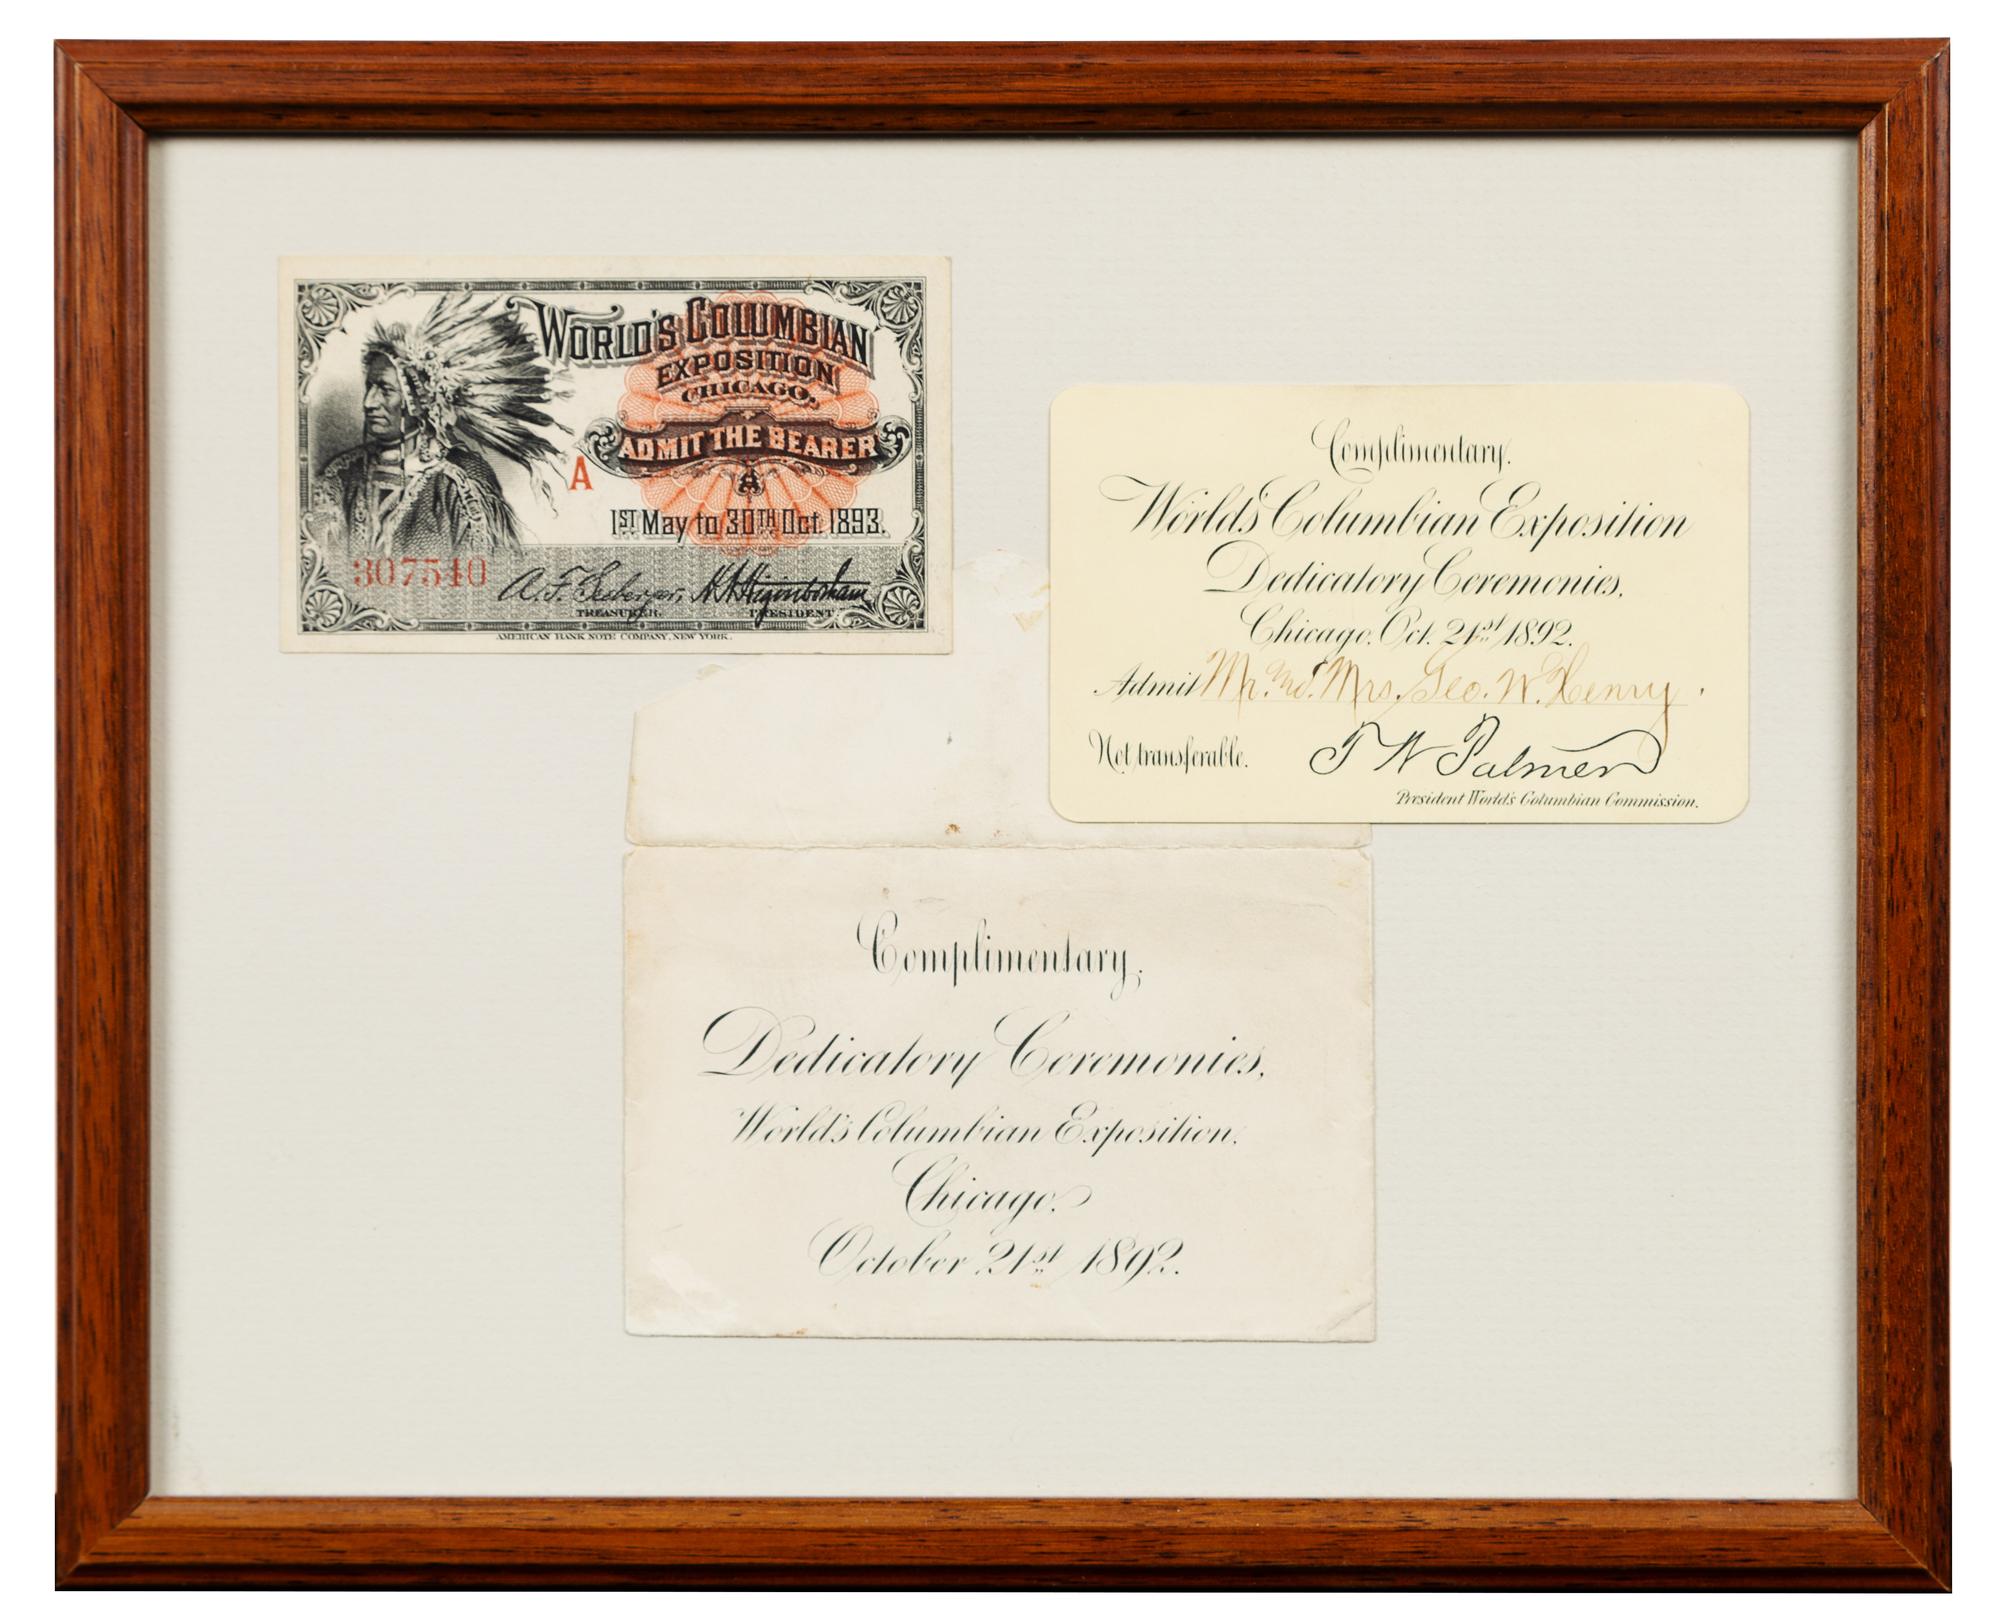 WORLD'S COLUMBIAN
EXPOSITION
CHICAGO.
ADMIT THE BEARER
A
1ST May to 30TH Oct. 1893.
307540
A. F. Seeberger, H. N. Higinbotham
TREASURER. PRESIDENT
AMERICAN BANK NOTE COMPANY, NEW YORK.
Complimentary.
World's Columbian Exposition
Dedicatory Ceremonies.
Chicago. Oct. 21st 1892.
Admit Mr. and Mrs. Geo. W. Henry.
Not transferable. T W Palmer
President World's Columbian Commission.
Complimentary.
Dedicatory Ceremonies,
World's Columbian Exposition.
Chicago.
October 21st 1892.